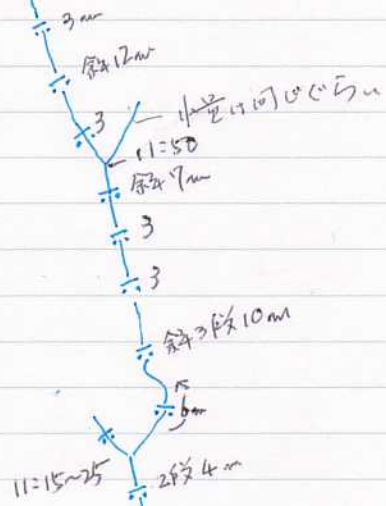 3m
斜12m
3
水量は同じぐらい
11:50
斜7m
3
3
斜3段10m
6m
11:15~25
2段4m